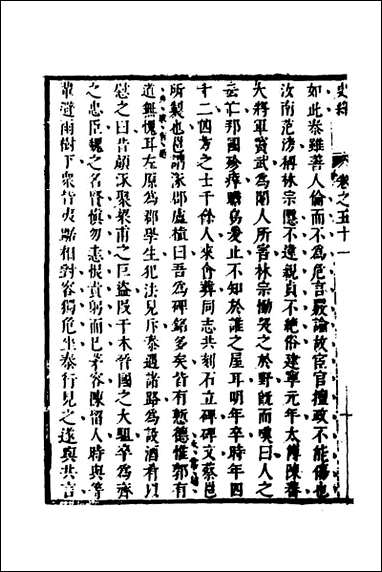 史緯 卷之五十一 十
如此泰雖善人倫而不為危言覈論故宦官擅政不能傷也
汝南范滂稱林宗隱不違親貞不絕俗建寧元年太傅陳蕃
大將軍竇武為閹人所害林宗慟哭之於野既而嘆曰人之
云亡邦國殄瘁瞻烏爰止不知於誰之屋耳明年卒時年四
十二四方之士千餘人來會葬同志共刻石立碑碑文蔡邕
所製也邕謂涿郡盧植曰吾為碑銘多矣皆有慙德惟郭有
道無愧耳左原為郡學生犯法見斥泰遇諸路為設酒肴以
慰之曰昔顏涿聚梁甫之巨盜段干木晉國之大駔卒為齊
之忠臣魏之名賢慎勿恚恨責躬而已茅容陳留人時與等
輩避雨樹下衆皆夷踞相對容獨危坐泰行見之遂與共言